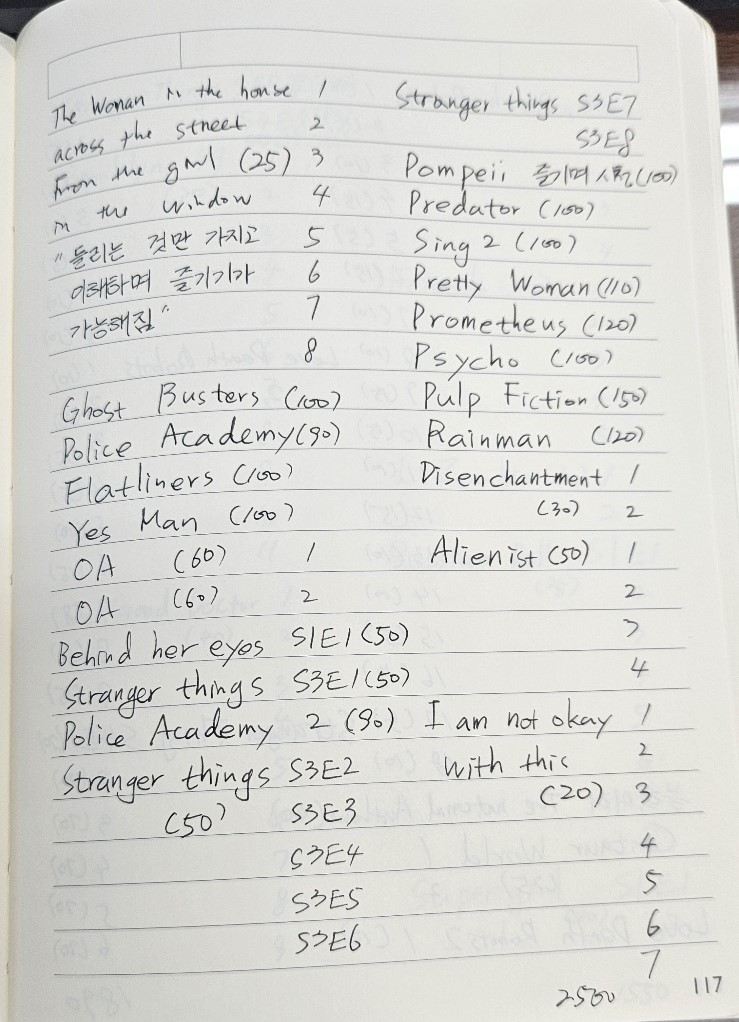 The Woman in the house 1
across the street 2
from the girl (25) 3
in the window 4
"들리는 것만 가지고 5
이해하며 즐기기가 6
가능해짐" 7
8
Ghost Busters (100)
Police Academy (90)
Flatliners (100)
Yes Man (100)
OA (60) 1
OA (60) 2
Behind her eyes S1E1 (50)
Stranger things S3E1 (50)
Police Academy 2 (90)
Stranger things S3E2
(50) S3E3
S3E4
S3E5
S3E6
Stranger things S3E7
S3E8
Pompeii 즐기며 시청 (100)
Predator (100)
Sing 2 (100)
Pretty Woman (110)
Prometheus (120)
Psycho (100)
Pulp Fiction (150)
Rainman (120)
Disenchantment 1
(30) 2
Alienist (50) 1
2
3
4
I am not okay 1
with this 2
(20) 3
4
5
6
7
2500
117